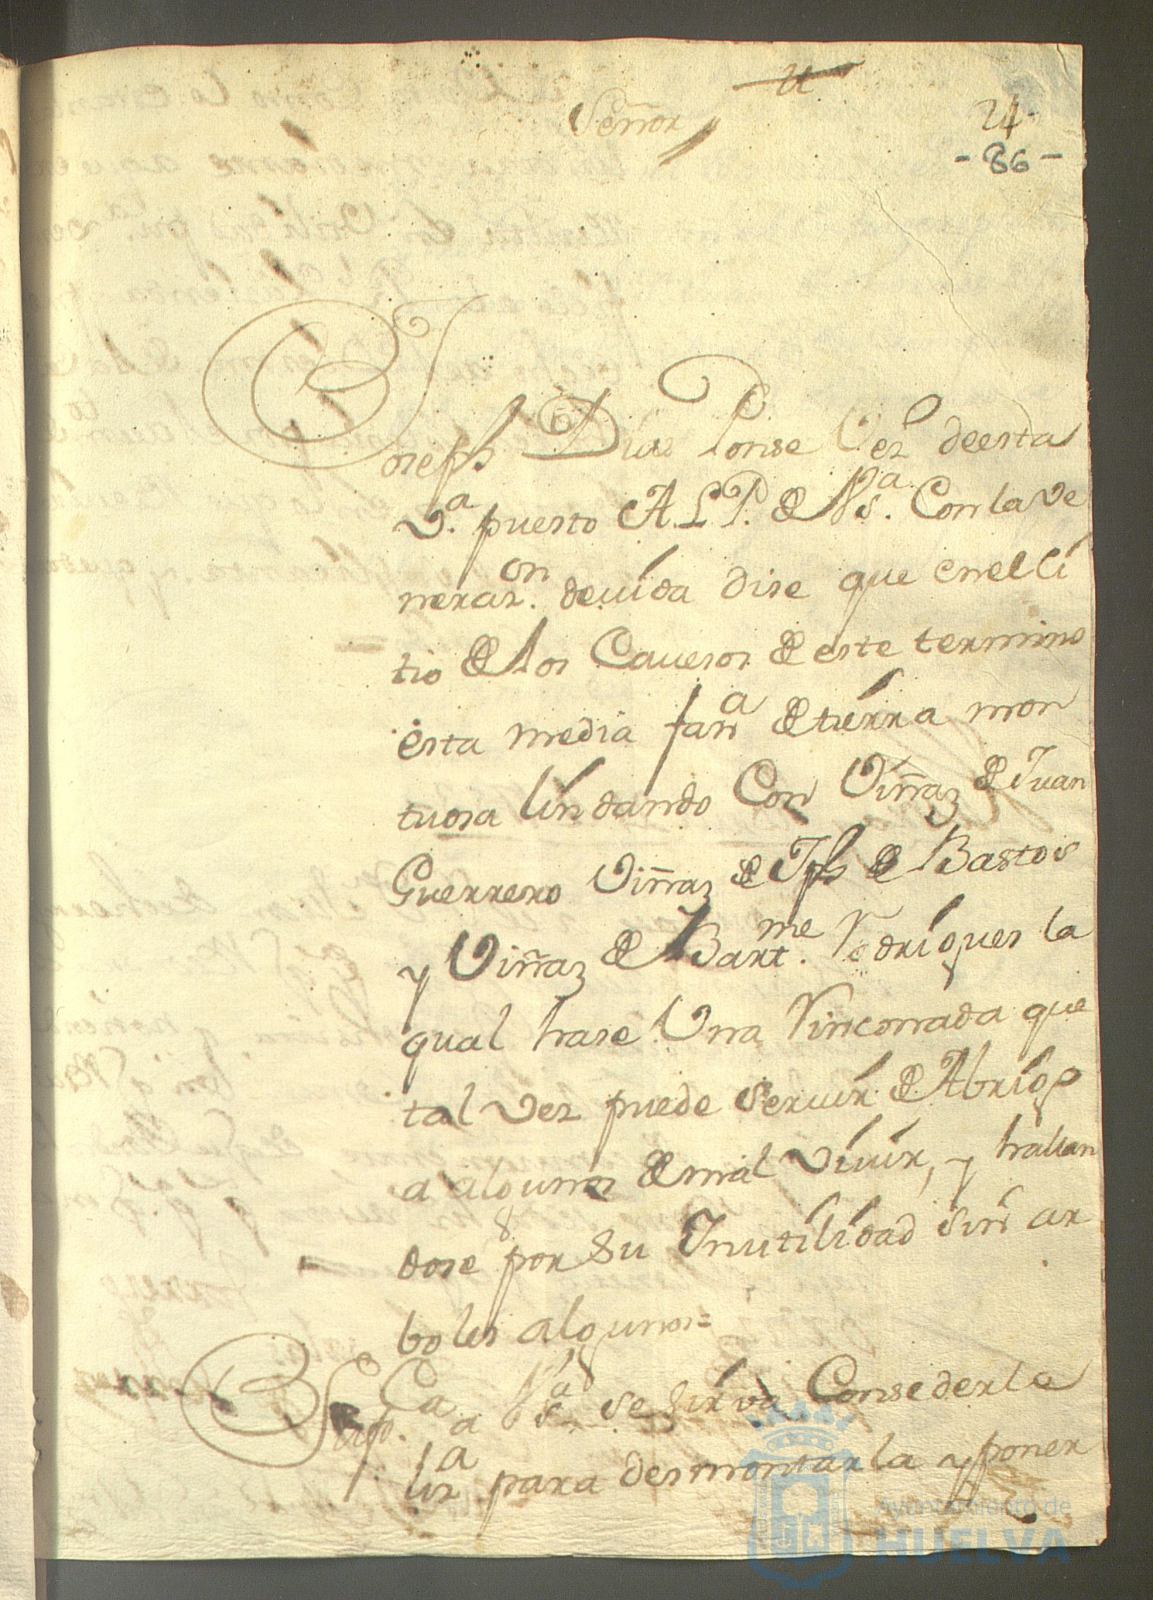 Señor
24
- 86 -
Joseph Dias Ponse Vez.º de esta
V.ª puesto A.L.P. de V.s.ª Con la ve
neraz.on devida dise que en el sí
tio de los Cavesos de este termino
esta media fan.ª de tierra mon
tuosa lindando Con Viñaz de Juan
Guerrero Viñaz de Jph de Bastos
y Viñaz de Bart.me Rodrigues la
qual hase Una Rinconada que
tal vez puede servir de Abrigo
a algunos de mal vivir, y hallan
dose por su Inutilidad sin ar
boles algunos=
Sup.Ca a V.s.ª se sirva Consederle
liz.ª para desmontarla y poner
Ayuntamiento de
HUELVA